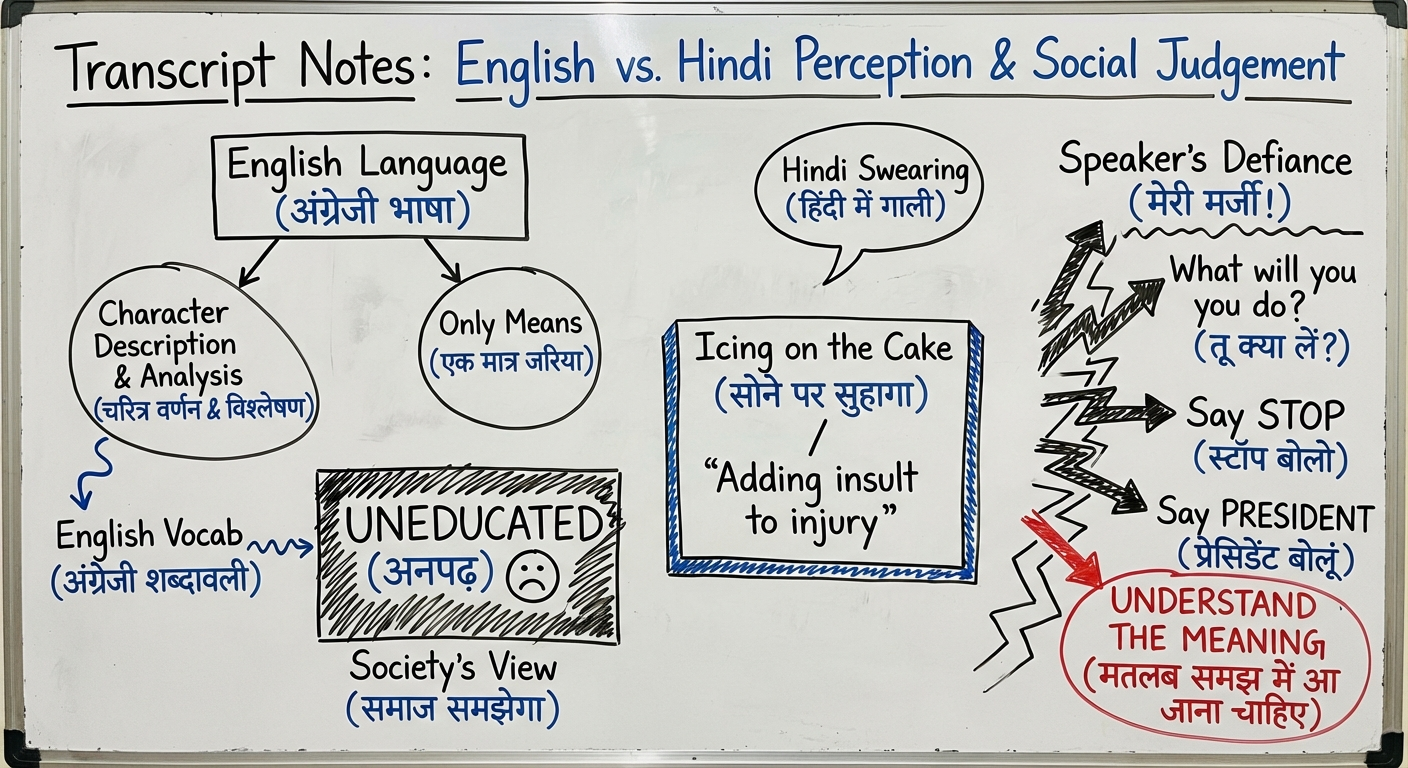 Transcript Notes: English vs. Hindi Perception & Social Judgement
English Language
(अंग्रेजी भाषा)
Character
Description
& Analysis
(चरित्र वर्णन & विश्लेषण)
Only Means
(एक मात्र जरिया)
English Vocab
(अंग्रेजी शब्दावली)
UNEDUCATED
(अनपढ़)
Society's View
(समाज समझेगा)
Hindi Swearing
(हिंदी में गाली)
Icing on the Cake
(सोने पर सुहागा)
/
"Adding insult
to injury"
Speaker's Defiance
(मेरी मर्जी!)
What will you
you do?
(तू क्या लें?)
Say STOP
(स्टॉप बोलो)
Say PRESIDENT
(प्रेसिडेंट बोलूं)
UNDERSTAND
THE MEANING
(मतलब समझ में आ
जाना चाहिए)